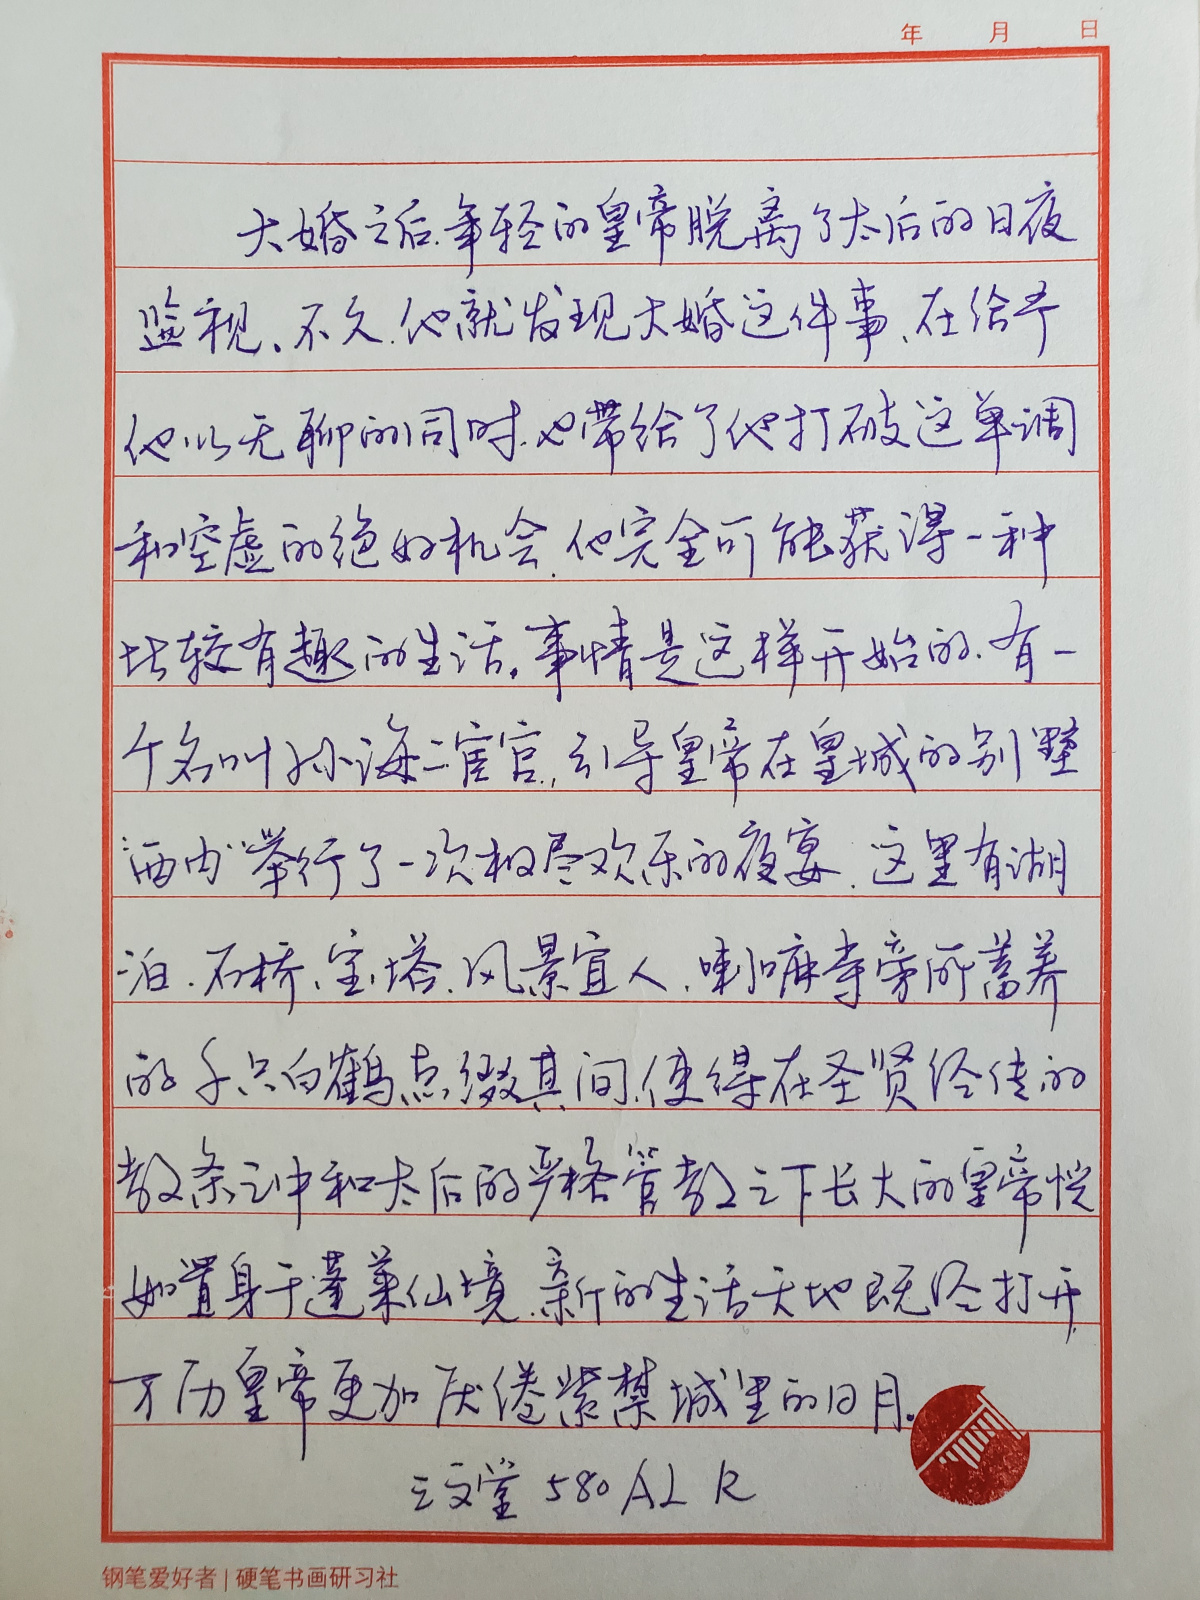 年 月 日
大婚之后,年轻的皇帝脱离了太后的日夜
监视。不久,他就发现大婚这件事,在给予
他以无聊的同时,也带给了他打破这单调
和空虚的绝好机会,他完全可能获得一种
比较有趣的生活。事情是这样开始的,有一
个名叫孙海之宦官,引导皇帝在皇城的别墅
“西内”举行了一次极尽欢乐的夜宴,这里有湖
泊、石桥、宝塔,风景宜人,喇嘛寺旁所蓄养
的千只白鹤点缀其间,使得在圣贤经传的
教条之中和太后的严格管教之下长大的皇帝恍
如置身于蓬莱仙境,新的生活天地既经打开,
万历皇帝更加厌倦紫禁城里的日月。
三文堂 580 AL R
钢笔爱好者 | 硬笔书画研习社